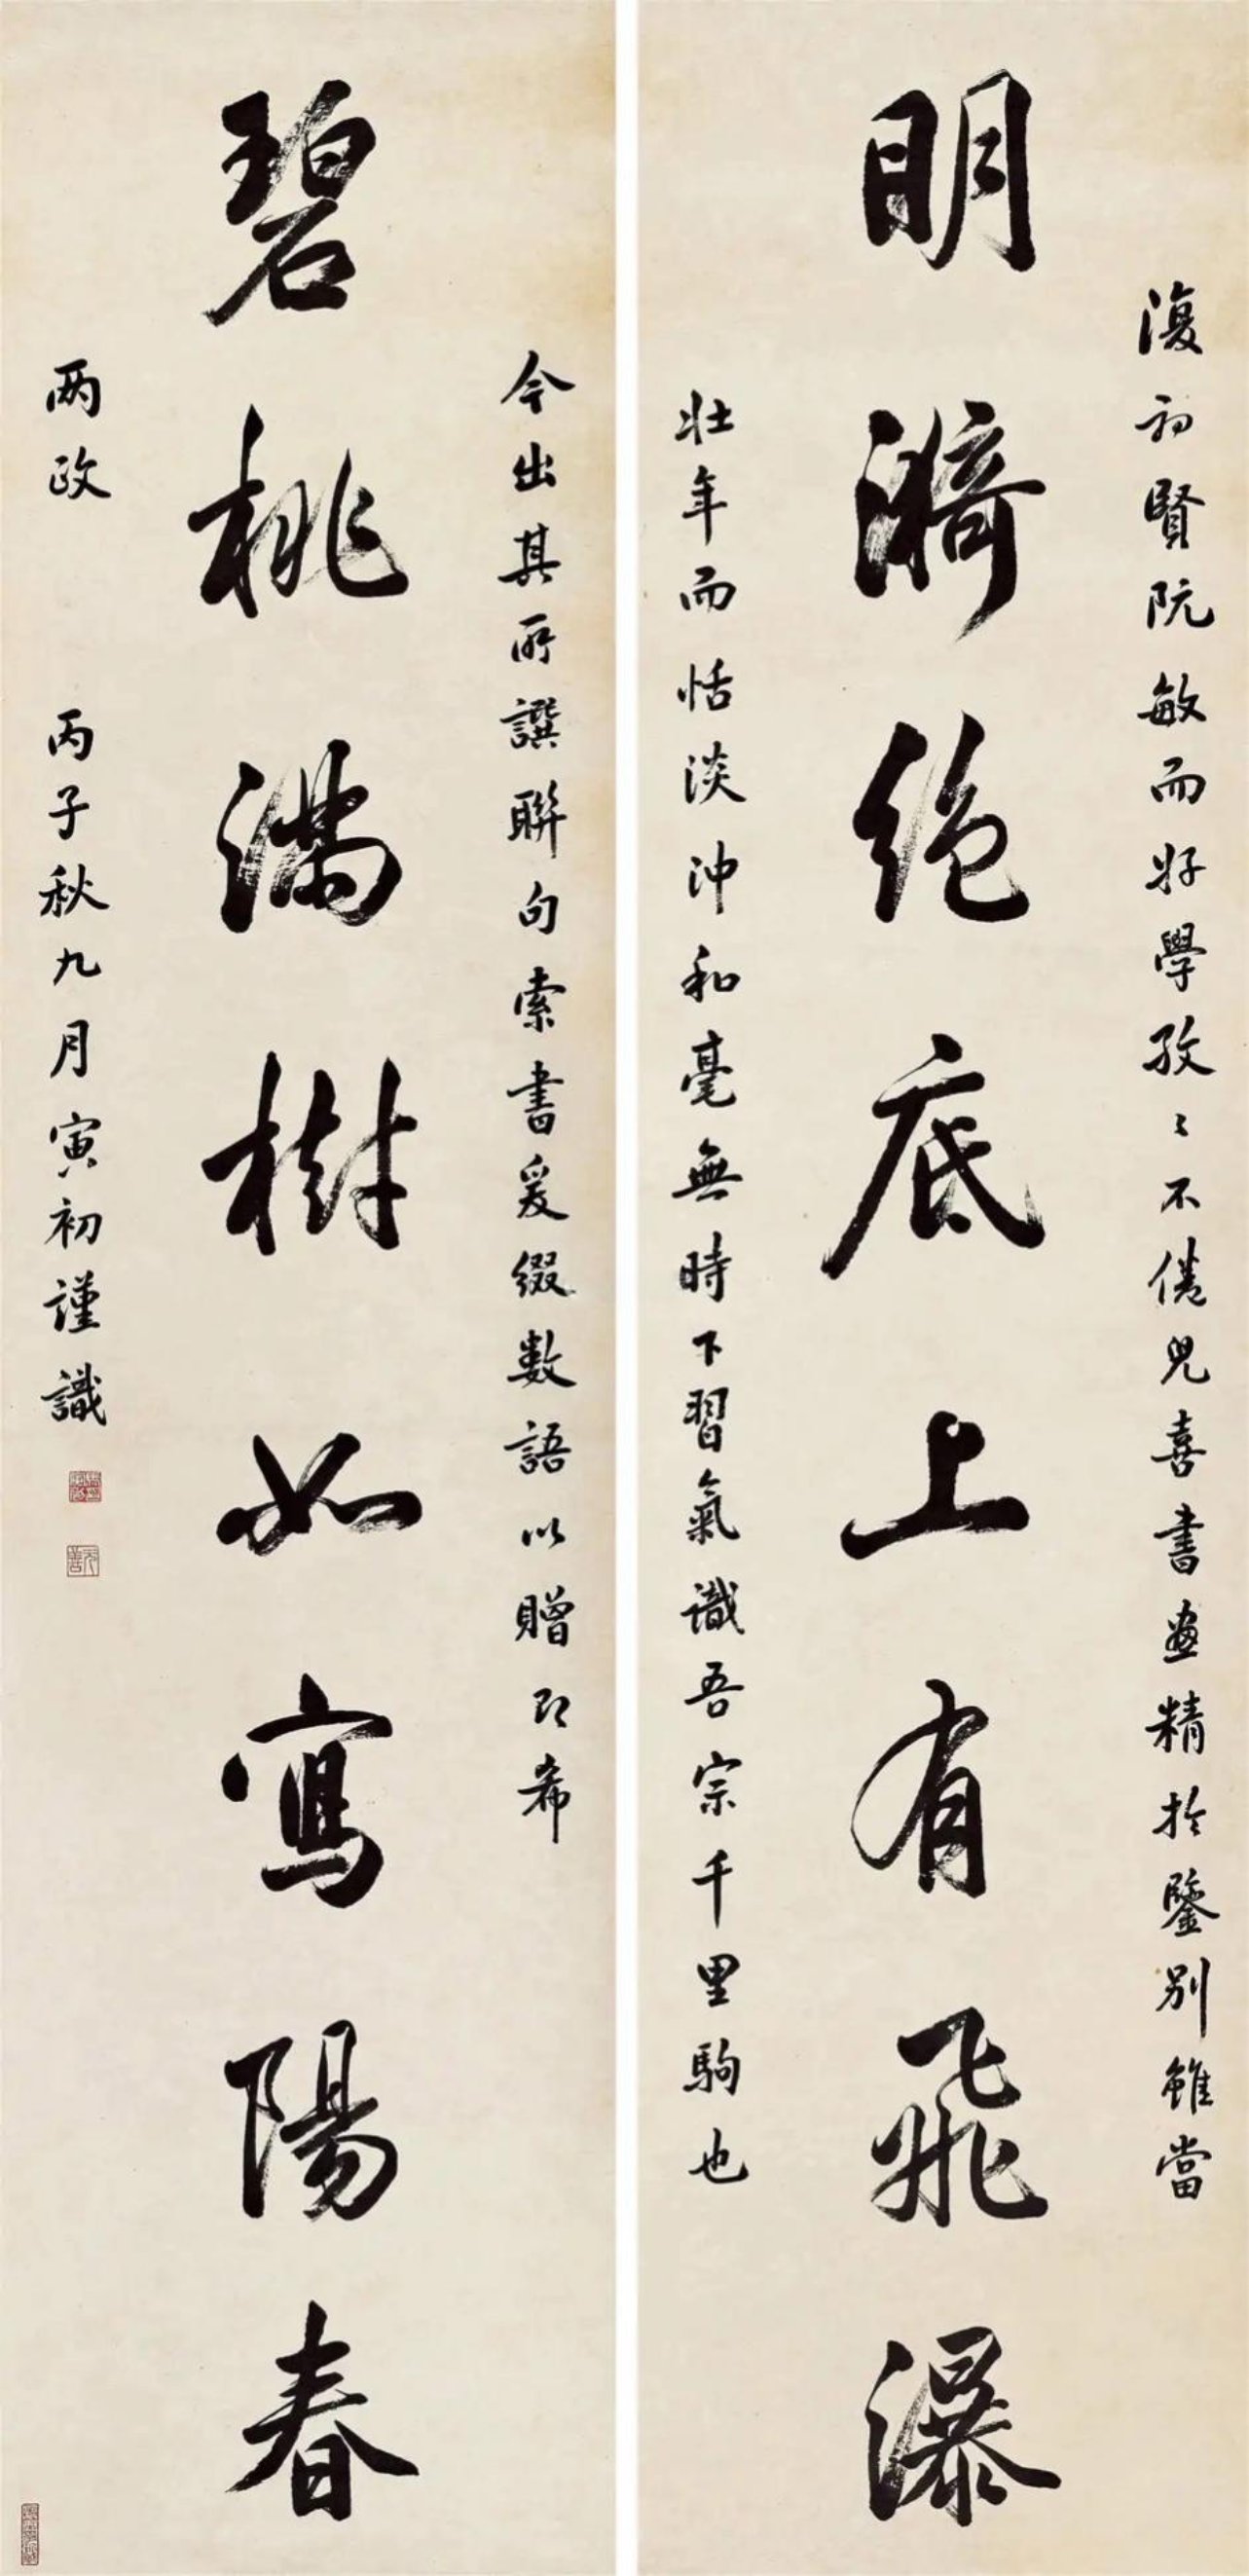 復初賢阮敏而好學孜〻不倦兒喜書畫精於鑒別雖當
明漪絕底上有飛瀑
壯年而恬淡沖和毫無時下習氣識吾宗千里駒也
今出其所譔聯句索書爰綴數語以贈即希
碧桃滿樹如寫陽春
兩政 丙子秋九月寅初謹識